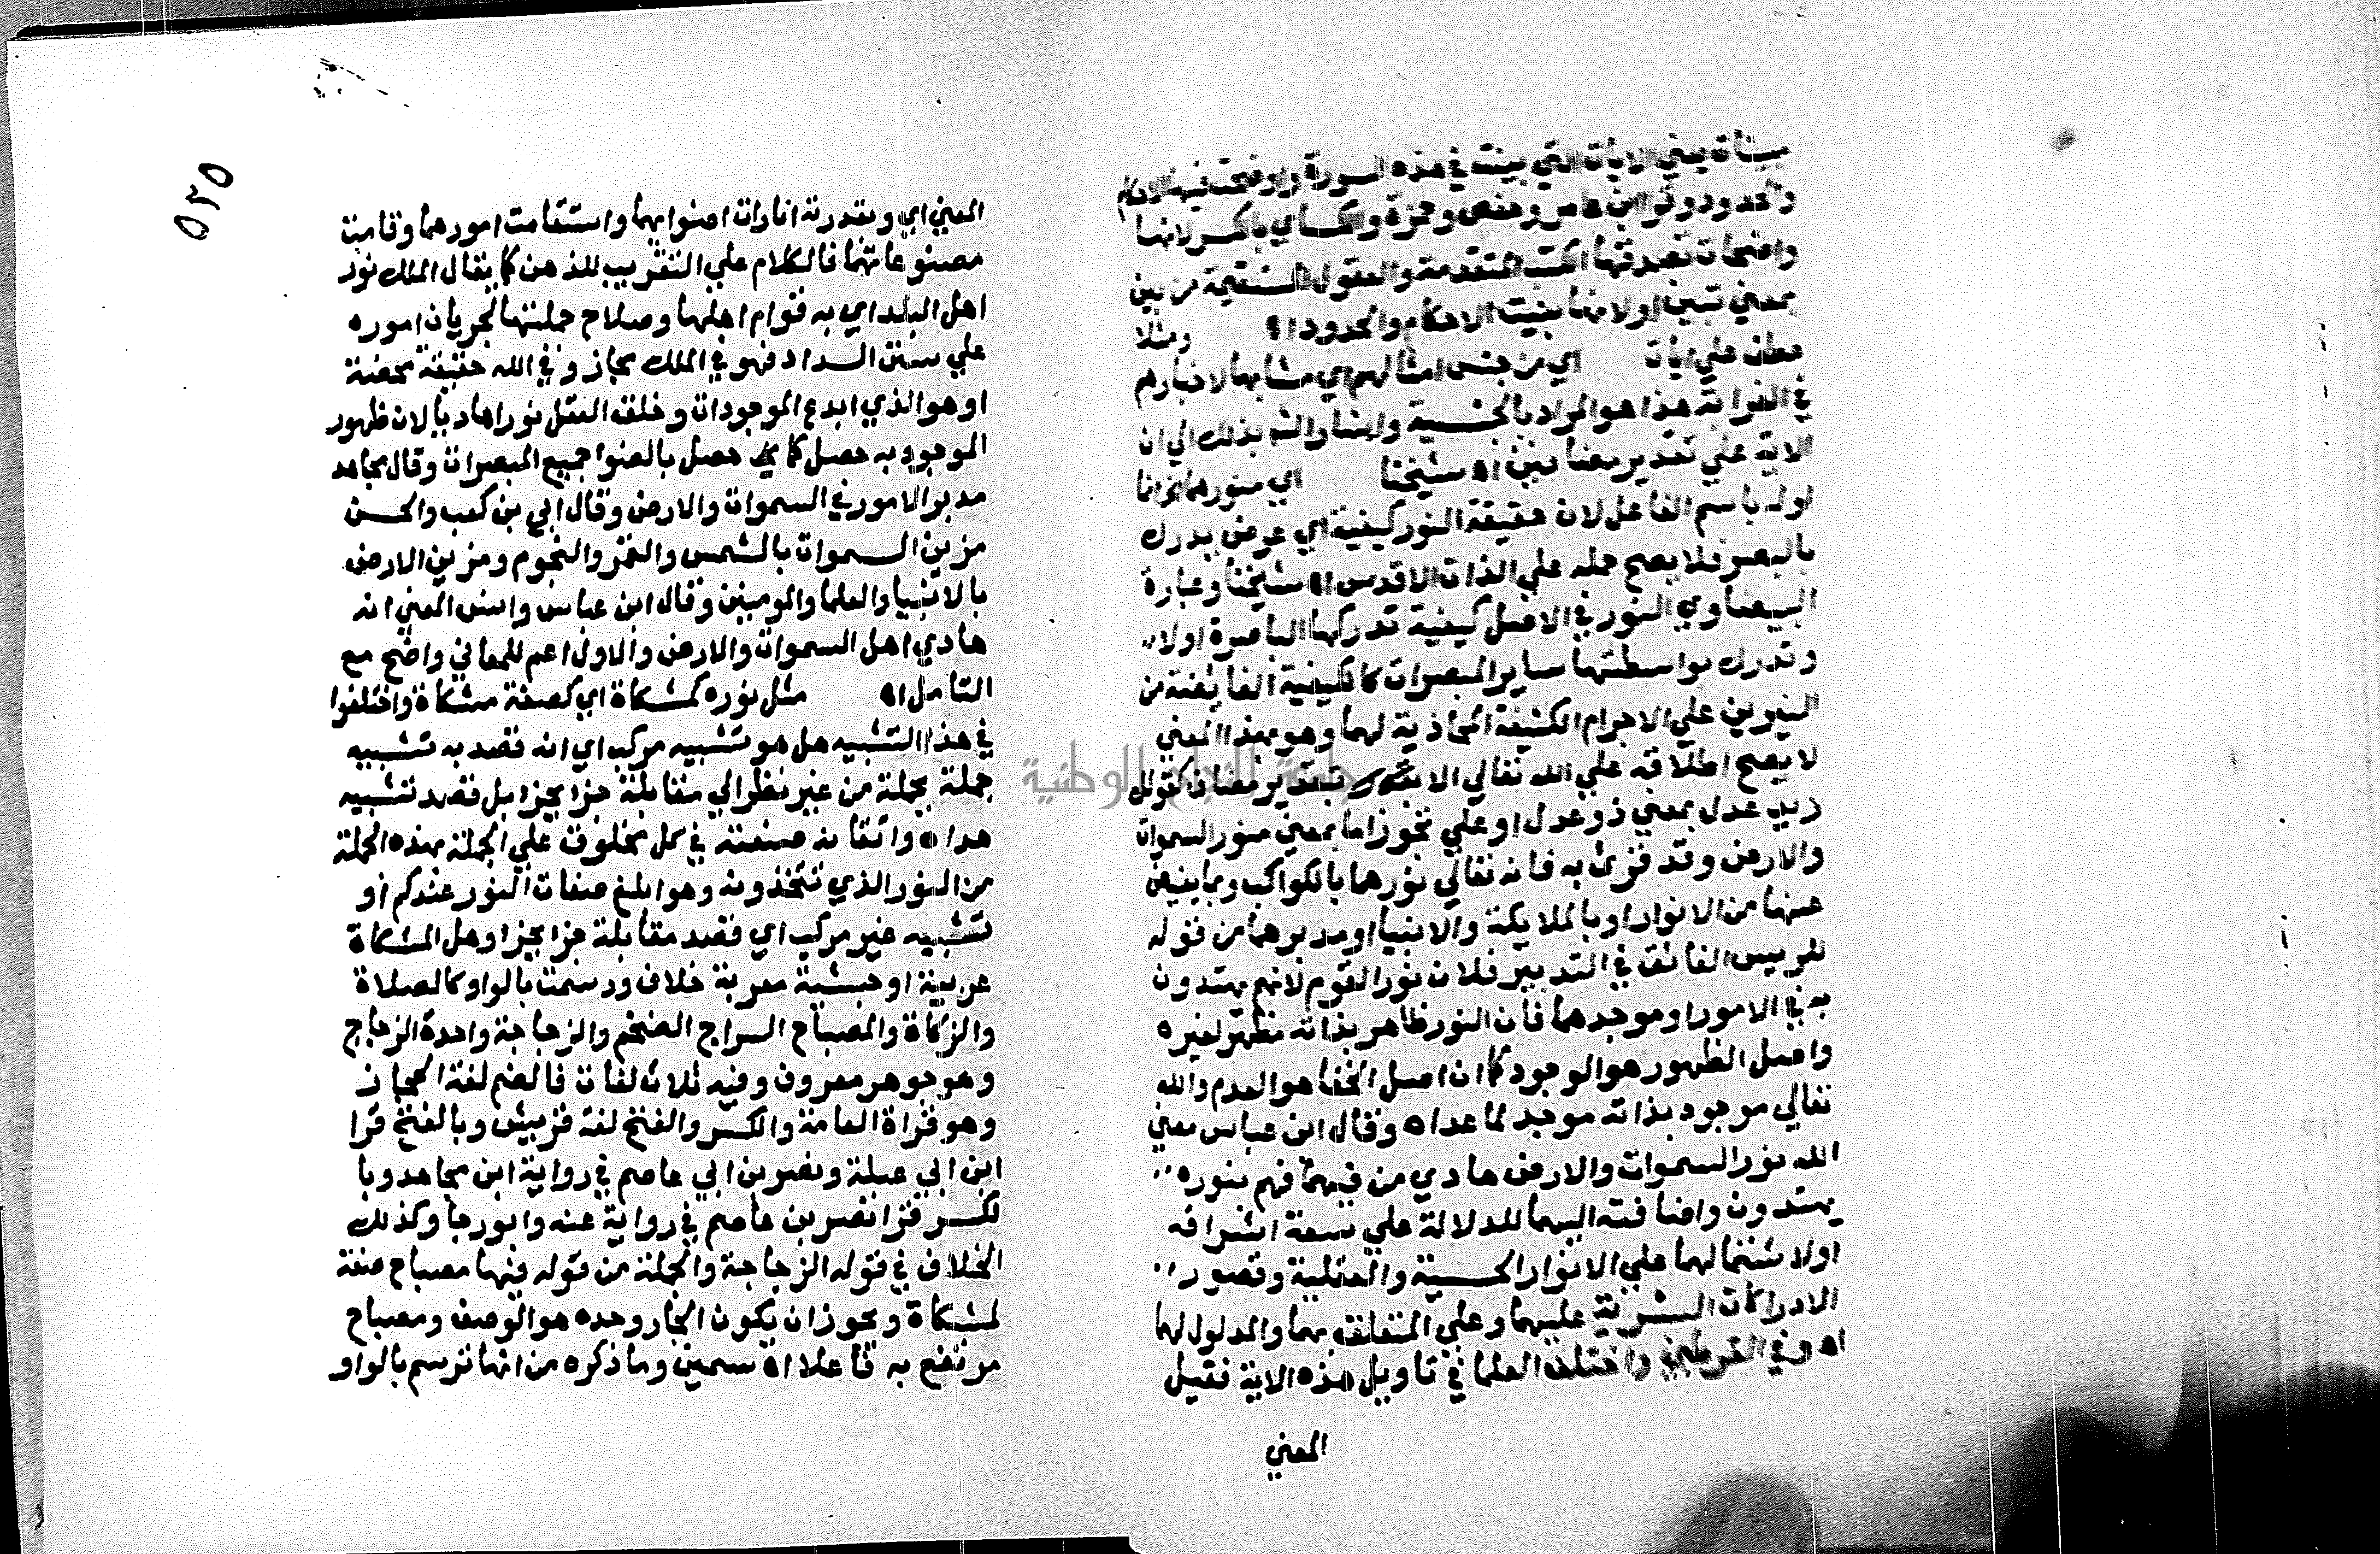 مبينات يعني الايات التي بينت في هذه السورة واوضحت فيها الاحكام
والحدود وقرا ابن عامر وحفص وحمزة والكساي بالكسر لانها
واضحات تصدقها الكتب المتقدمة والعقول المستقيمة من بين
بمعني تبين او لانها بينت الاحكام والحدود اه ومثلا
عطف علي ايات اي من جنس امثالهم اي مشابها لاخبارهم
في الغرابة هذا هو المراد بالجنسية وايضا واشر بذلك الي ان
الاية علي تقدير مضافين اه شيخنا اي منورهما
اوله باسم الفاعل لان حقيقة النور كيفية اي عرض يدرك
بالبصر فلا يصح حمله علي الذات الاقدس اه شيخنا وعبارة
البيضاوي النور في الاصل كيفية تدركها الباصرة اولا
وتدرك بواسطتها ساير المبصرات كالكيفية الفايضة من
النيرين علي الاجرام الكثيفة المحاذية لهما وهو بهذا المعني
لا يصح اطلاقه علي الله تعالي الا بتقدير مضاف كقولك
زيد عدل بمعني ذو عدل او علي تجوز اما بمعني منور السموات
والارض وقد قرئ به فانه تعالي نورهما بالكواكب وبما يفيض
عنها من الانوار او بالملايكة والانبيا او مدبرهما من قوله
للرييس الفائق في التدبير فلان نور القوم لانهم يهتدون
به في الامور او موجدهما فان النور ظاهر بذاته مظهر لغيره
واصل الظهور هو الوجود كما ان اصل الخفا هو العدم والله
تعالي موجود بذاته موجد لما عداه وقال ابن عباس معني
الله نور السموات والارض هادي من فيهما فهم بنوره
يهتدون واضافته اليهما للدلالة علي سعة اشراقه
اولاشتمالهما علي الانوار الحسية والعقلية وقصور
الادراكات البشرية عليهما وعلي المتعلقه بهما والمدلول لهما
اه وفي القرطبي واختلف العلما في تاويل هذه الاية فقيل
المعني
٥٢٥
المعني اي وبقدرته انارات اضوايهما واستقامت امورهما وقامت
مصنوعاتهما فالكلام علي التقريب للذهن كما يقال الملك نور
اهل البلد اي به قوام اهلها وصلاح جملتها لجريان اموره
علي سنن السداد فهو في الملك مجاز وفي الله حقيقة محضة
او هو الذي ابدع الموجودات وخلق العقل نورا هاديا لان ظهور
الموجود به حصل كما حصل بالضوا جميع المبصرات وقال مجاهد
مدبر الامور في السموات والارض وقال ابي بن كعب والحسن
مزين السموات بالشمس والقمر والنجوم ومزين الارض
بالانبيا والعلما والمومنين وقال ابن عباس وانس المعني انه
هادي اهل السموات والارض والاول اعم للمعاني واضح مع
التامل اه مثل نوره كمشكاة اي كصفة مشكاة واختلفوا
في هذا التشبيه هل هو تشبيه مركب اي انه قصد به تشبيه
جملة بجملة من غير نظر الي مقابلة جزا بجزا بل قصد تشبيه
هداه واتقانه صنعته في كل مخلوق علي الجملة بهذه الجملة
من النور الذي تتخذونه وهو ابلغ صفات النور عندكم او
تشبيه غير مركب اي قصد مقابلة جزا بجزا وهل المشكاة
عربية او حبشية معربة خلاف ورسمت بالواو كالصلاة
والزكاة والمصباح السراج الضخم والزجاجة واحدة الزجاج
وهو جوهر معروف وفيه ثلاث لغات فالضم لغة الحجاز
وهو قراة العامة والكسر والفتح لغة قريش وبالفتح قرا
ابن ابي عبلة ونصر بن ابي عاصم في رواية ابن مجاهد وبا
لكسر قرا نصر بن عاصم في رواية عنه وابو رجا وكذلك
الخلاف في قوله الزجاجة والجملة من قوله فيها مصباح صفة
لمشكاة ويجوز ان يكون الجار وحده هو الوصف ومصباح
مرتفع به فاعلا اه سمين وما ذكره من انها ترسم بالواو
جامعة النجاح الوطنية